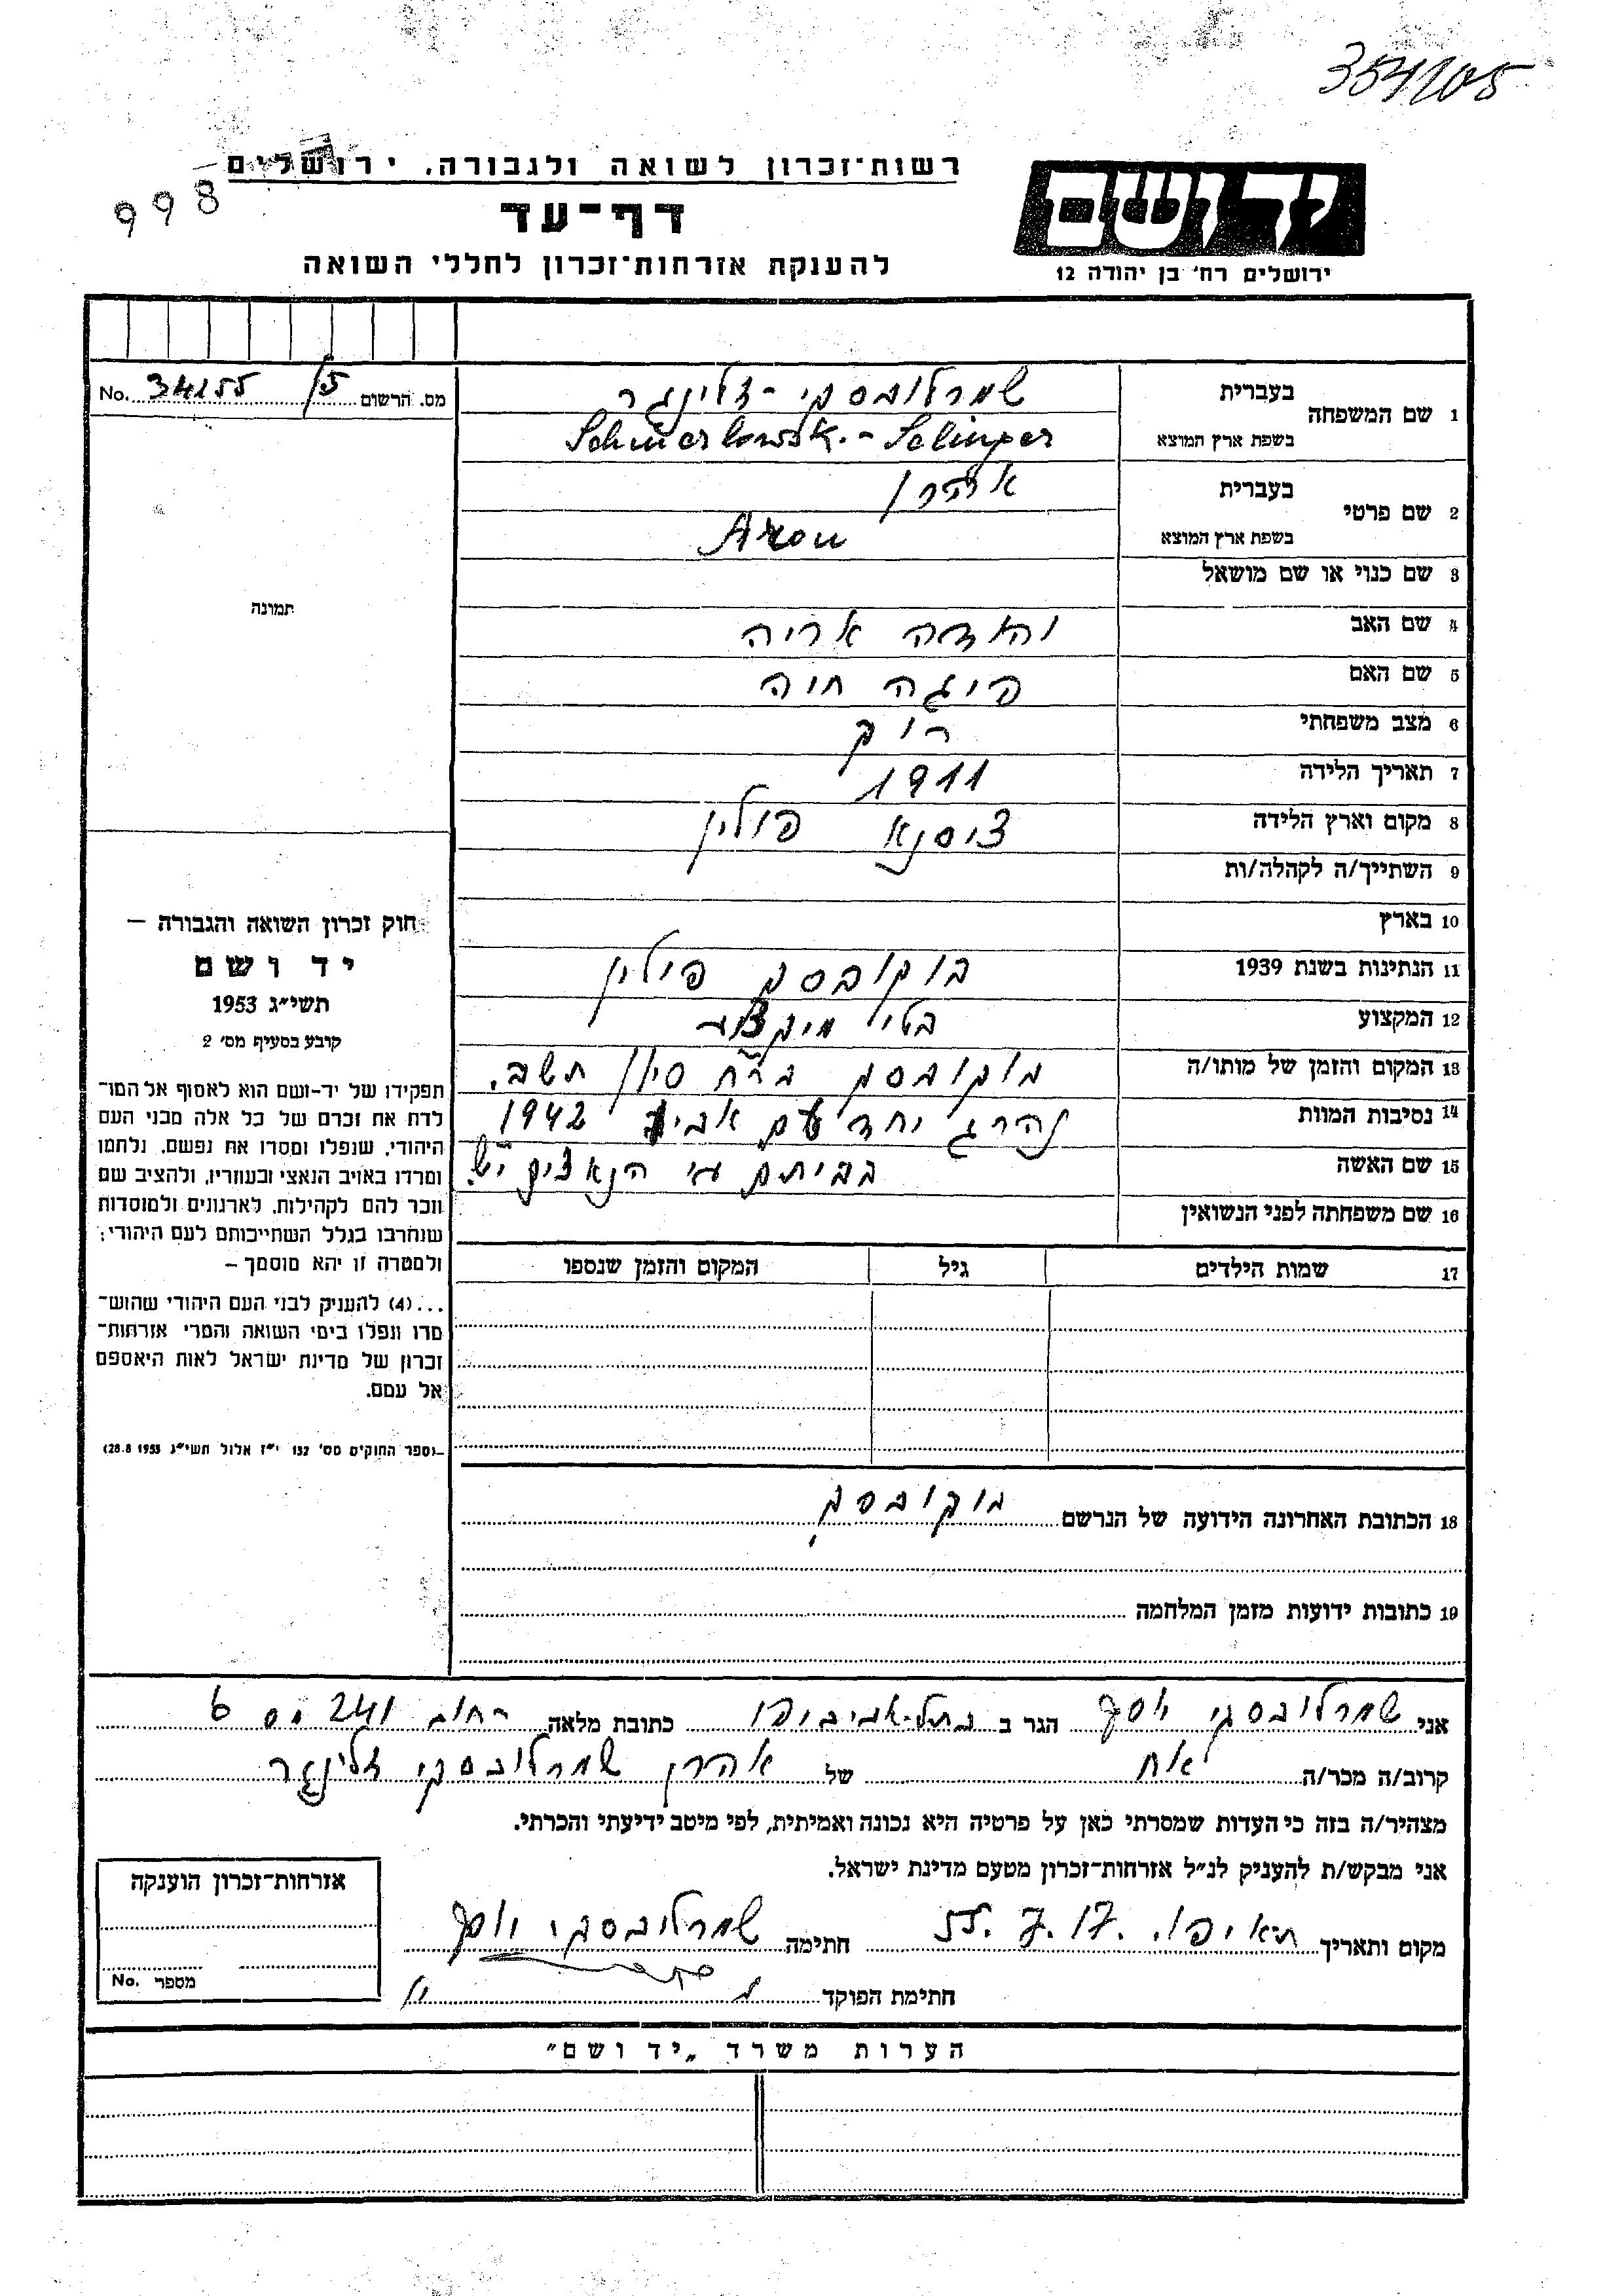 354105
רשות־זכרון לשואה ולגבורה, ירושלים
998
דף־עד
להענקת אזרחות־זכרון לחללי השואה
ידושם
ירושלים רח' בן יהודה 12
מס. הרשום 34155 /5 No.
1 שם המשפחה
בעברית שמרלובסקי - זלינגר
בשפת ארץ המוצא Schmerlowsk. - Selinger
2 שם פרטי
בעברית אהרן
בשפת ארץ המוצא Aron
3 שם כנוי או שם מושאל
4 שם האב יהודה אריה
5 שם האם פיגה חוה
6 מצב משפחתי רוק
7 תאריך הלידה 1911
8 מקום וארץ הלידה צוסנא פולין
9 השתייך/ה לקהלה/ות
10 בארץ
11 הנתינות בשנת 1939 בוקובסק פולין
12 המקצוע
13 המקום והזמן של מותו/ה בוקובסק בר"ח סיון תשב.
14 נסיבות המוות נהרג יחד עם אביו 1942
15 שם האשה בביתם ע"י הנאצים
16 שם משפחתה לפני הנשואין
17 שמות הילדים גיל המקום והזמן שנספו
18 הכתובת האחרונה הידועה של הנרשם בוקובסק
19 כתובות ידועות מזמן המלחמה
תמונה
חוק זכרון השואה והגבורה –
יד ושם
תשי"ג 1953
קובע בסעיף מס' 2
תפקידו של יד־ושם הוא לאסוף אל המו־
לדת את זכרם של כל אלה מבני העם
היהודי, שנפלו ומסרו את נפשם, נלחמו
ומרדו באויב הנאצי ובעוזריו, ולהציב שם
וזכר להם לקהילות, לארגונים ולמוסדות
שנחרבו בגלל השתייכותם לעם היהודי;
ולמטרה זו יהא מוסמך –
...(4) להעניק לבני העם היהודי שהוש־
מדו ונפלו בימי השואה והמרי אזרחות־
זכרון של מדינת ישראל לאות היאספם
אל עמם.
(ספר החוקים מס' 132 י"ז אלול תשי"ג 28.8.1953)
אני שמרלובסקי יוסף הגר ב בתל-אביב יפו כתובת מלאה רחוב 241 מס 6
קרוב/ה מכר/ה אח של אהרן שמרלובסקי זלינגר
מצהיר/ה בזה כי העדות שמסרתי כאן על פרטיה היא נכונה ואמיתית, לפי מיטב ידיעתי והכרתי.
אני מבקש/ת להעניק לנ"ל אזרחות־זכרון מטעם מדינת ישראל.
מקום ותאריך ת"א יפו. 17. 7. 55 חתימה שמרלובסקי יוסף
חתימת הפוקד
אזרחות־זכרון הוענקה
מספר No.
הערות משרד "יד ושם"